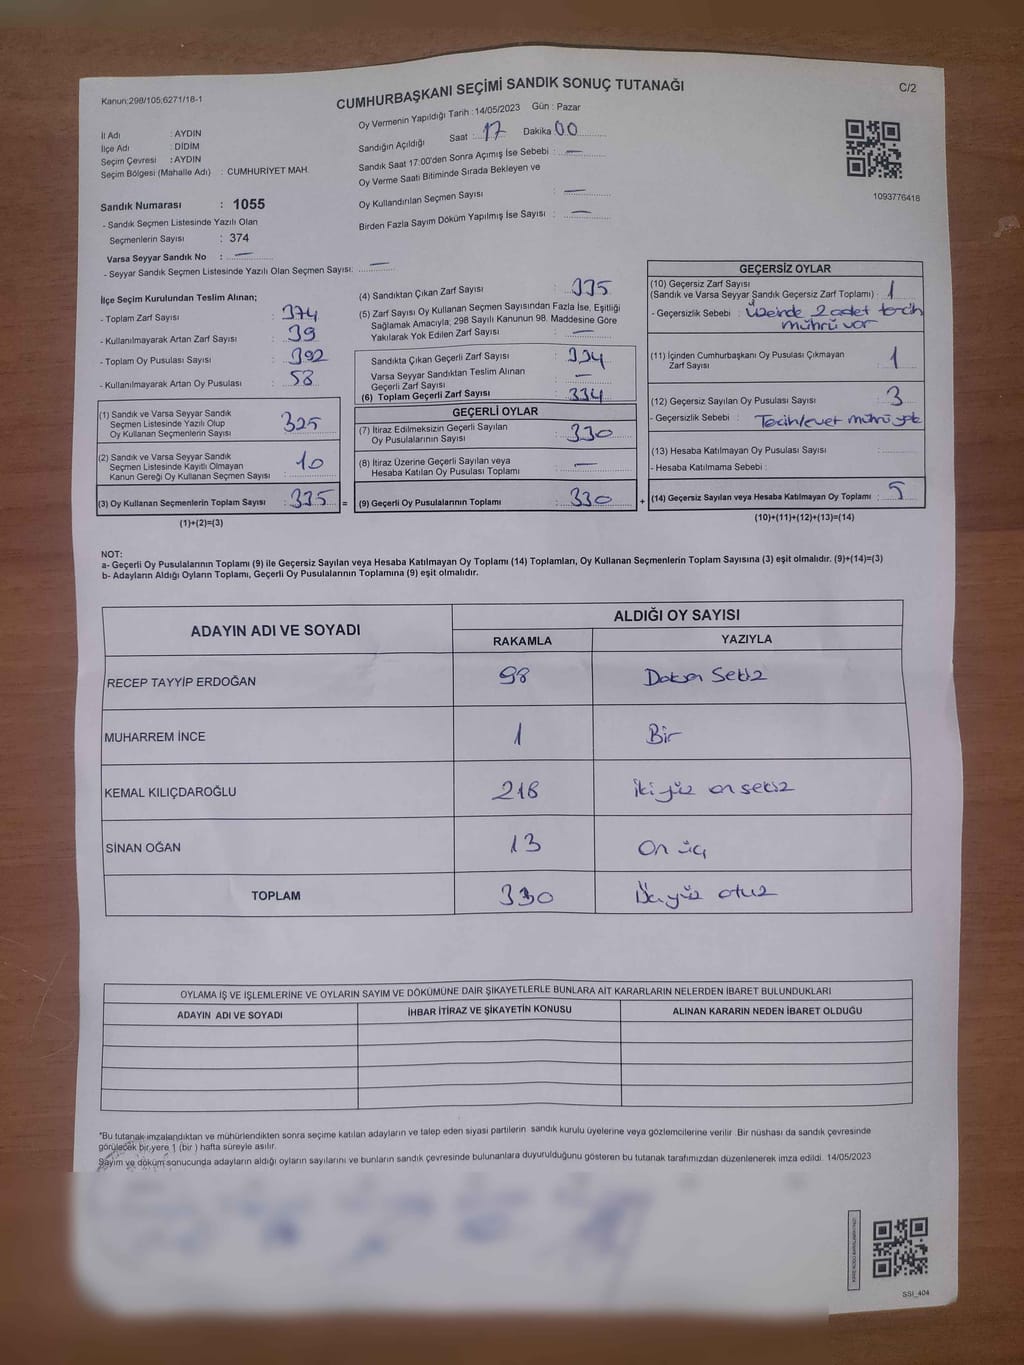 Kanun:298/105,6271/18-1
CUMHURBAŞKANI SEÇİMİ SANDIK SONUÇ TUTANAĞI
C/2
İl Adı : AYDIN
İlçe Adı : DİDİM
Seçim Çevresi : AYDIN
Seçim Bölgesi (Mahalle Adı) : CUMHURİYET MAH.
Oy Vermenin Yapıldığı Tarih : 14/05/2023 Gün : Pazar
Sandığın Açıldığı Saat : 17 Dakika 00
Sandık Saat 17:00'den Sonra Açımış İse Sebebi : —
Oy Verme Saati Bitiminde Sırada Bekleyen ve
Oy Kullandırılan Seçmen Sayısı : —
Birden Fazla Sayım Döküm Yapılmış İse Sayısı : —
1093776418
Sandık Numarası : 1055
- Sandık Seçmen Listesinde Yazılı Olan
Seçmenlerin Sayısı : 374
Varsa Seyyar Sandık No : —
- Seyyar Sandık Seçmen Listesinde Yazılı Olan Seçmen Sayısı: —
İlçe Seçim Kurulundan Teslim Alınan;
- Toplam Zarf Sayısı : 374
- Kullanılmayarak Artan Zarf Sayısı : 39
- Toplam Oy Pusulası Sayısı : 392
- Kullanılmayarak Artan Oy Pusulası : 58
(1) Sandık ve Varsa Seyyar Sandık
Seçmen Listesinde Yazılı Olup
Oy Kullanan Seçmenlerin Sayısı : 325
(2) Sandık ve Varsa Seyyar Sandık
Seçmen Listesinde Kayıtlı Olmayan
Kanun Gereği Oy Kullanan Seçmen Sayısı : 10
(3) Oy Kullanan Seçmenlerin Toplam Sayısı : 335 =
(1)+(2)=(3)
(4) Sandıktan Çıkan Zarf Sayısı : 335
(5) Zarf Sayısı Oy Kullanan Seçmen Sayısından Fazla İse, Eşitliği
Sağlamak Amacıyla, 298 Sayılı Kanunun 98. Maddesine Göre
Yakılarak Yok Edilen Zarf Sayısı : —
Sandıkta Çıkan Geçerli Zarf Sayısı : 334
Varsa Seyyar Sandıktan Teslim Alınan
Geçerli Zarf Sayısı : —
(6) Toplam Geçerli Zarf Sayısı : 334
GEÇERLİ OYLAR
(7) İtiraz Edilmeksizin Geçerli Sayılan
Oy Pusulalarının Sayısı : 330
(8) İtiraz Üzerine Geçerli Sayılan veya
Hesaba Katılan Oy Pusulası Toplamı : —
(9) Geçerli Oy Pusulalarının Toplamı : 330 +
GEÇERSİZ OYLAR
(10) Geçersiz Zarf Sayısı
(Sandık ve Varsa Seyyar Sandık Geçersiz Zarf Toplamı) : 1
- Geçersizlik Sebebi : Üzerinde 2 adet tercih
mührü var
(11) İçinden Cumhurbaşkanı Oy Pusulası Çıkmayan
Zarf Sayısı : 1
(12) Geçersiz Sayılan Oy Pusulası Sayısı : 3
- Geçersizlik Sebebi : Tercih/evet mührü yok
(13) Hesaba Katılmayan Oy Pusulası Sayısı :
- Hesaba Katılmama Sebebi :
(14) Geçersiz Sayılan veya Hesaba Katılmayan Oy Toplamı : 5
(10)+(11)+(12)+(13)=(14)
NOT:
a- Geçerli Oy Pusulalarının Toplamı (9) ile Geçersiz Sayılan veya Hesaba Katılmayan Oy Toplamı (14) Toplamları, Oy Kullanan Seçmenlerin Toplam Sayısına (3) eşit olmalıdır. (9)+(14)=(3)
b- Adayların Aldığı Oyların Toplamı, Geçerli Oy Pusulalarının Toplamına (9) eşit olmalıdır.
ADAYIN ADI VE SOYADI
ALDIĞI OY SAYISI
RAKAMLA YAZIYLA
RECEP TAYYİP ERDOĞAN 98 Doksan Sekiz
MUHARREM İNCE 1 Bir
KEMAL KILIÇDAROĞLU 218 iki yüz on sekiz
SİNAN OĞAN 13 On üç
TOPLAM 330 Üç yüz otuz
OYLAMA İŞ VE İŞLEMLERİNE VE OYLARIN SAYIM VE DÖKÜMÜNE DAİR ŞİKAYETLERLE BUNLARA AİT KARARLARIN NELERDEN İBARET BULUNDUKLARI
ADAYIN ADI VE SOYADI İHBAR İTİRAZ VE ŞİKAYETİN KONUSU ALINAN KARARIN NEDEN İBARET OLDUĞU
*Bu tutanak imzalandıktan ve mühürlendikten sonra seçime katılan adayların ve talep eden siyasi partilerin sandık kurulu üyelerine veya gözlemcilerine verilir .Bir nüshası da sandık çevresinde
görülecek bir yere 1 (bir ) hafta süreyle asılır.
Sayım ve döküm sonucunda adayların aldığı oyların sayılarını ve bunların sandık çevresinde bulunanlara duyurulduğunu gösteren bu tutanak tarafımızdan düzenlenerek imza edildi. 14/05/2023
SSI_404